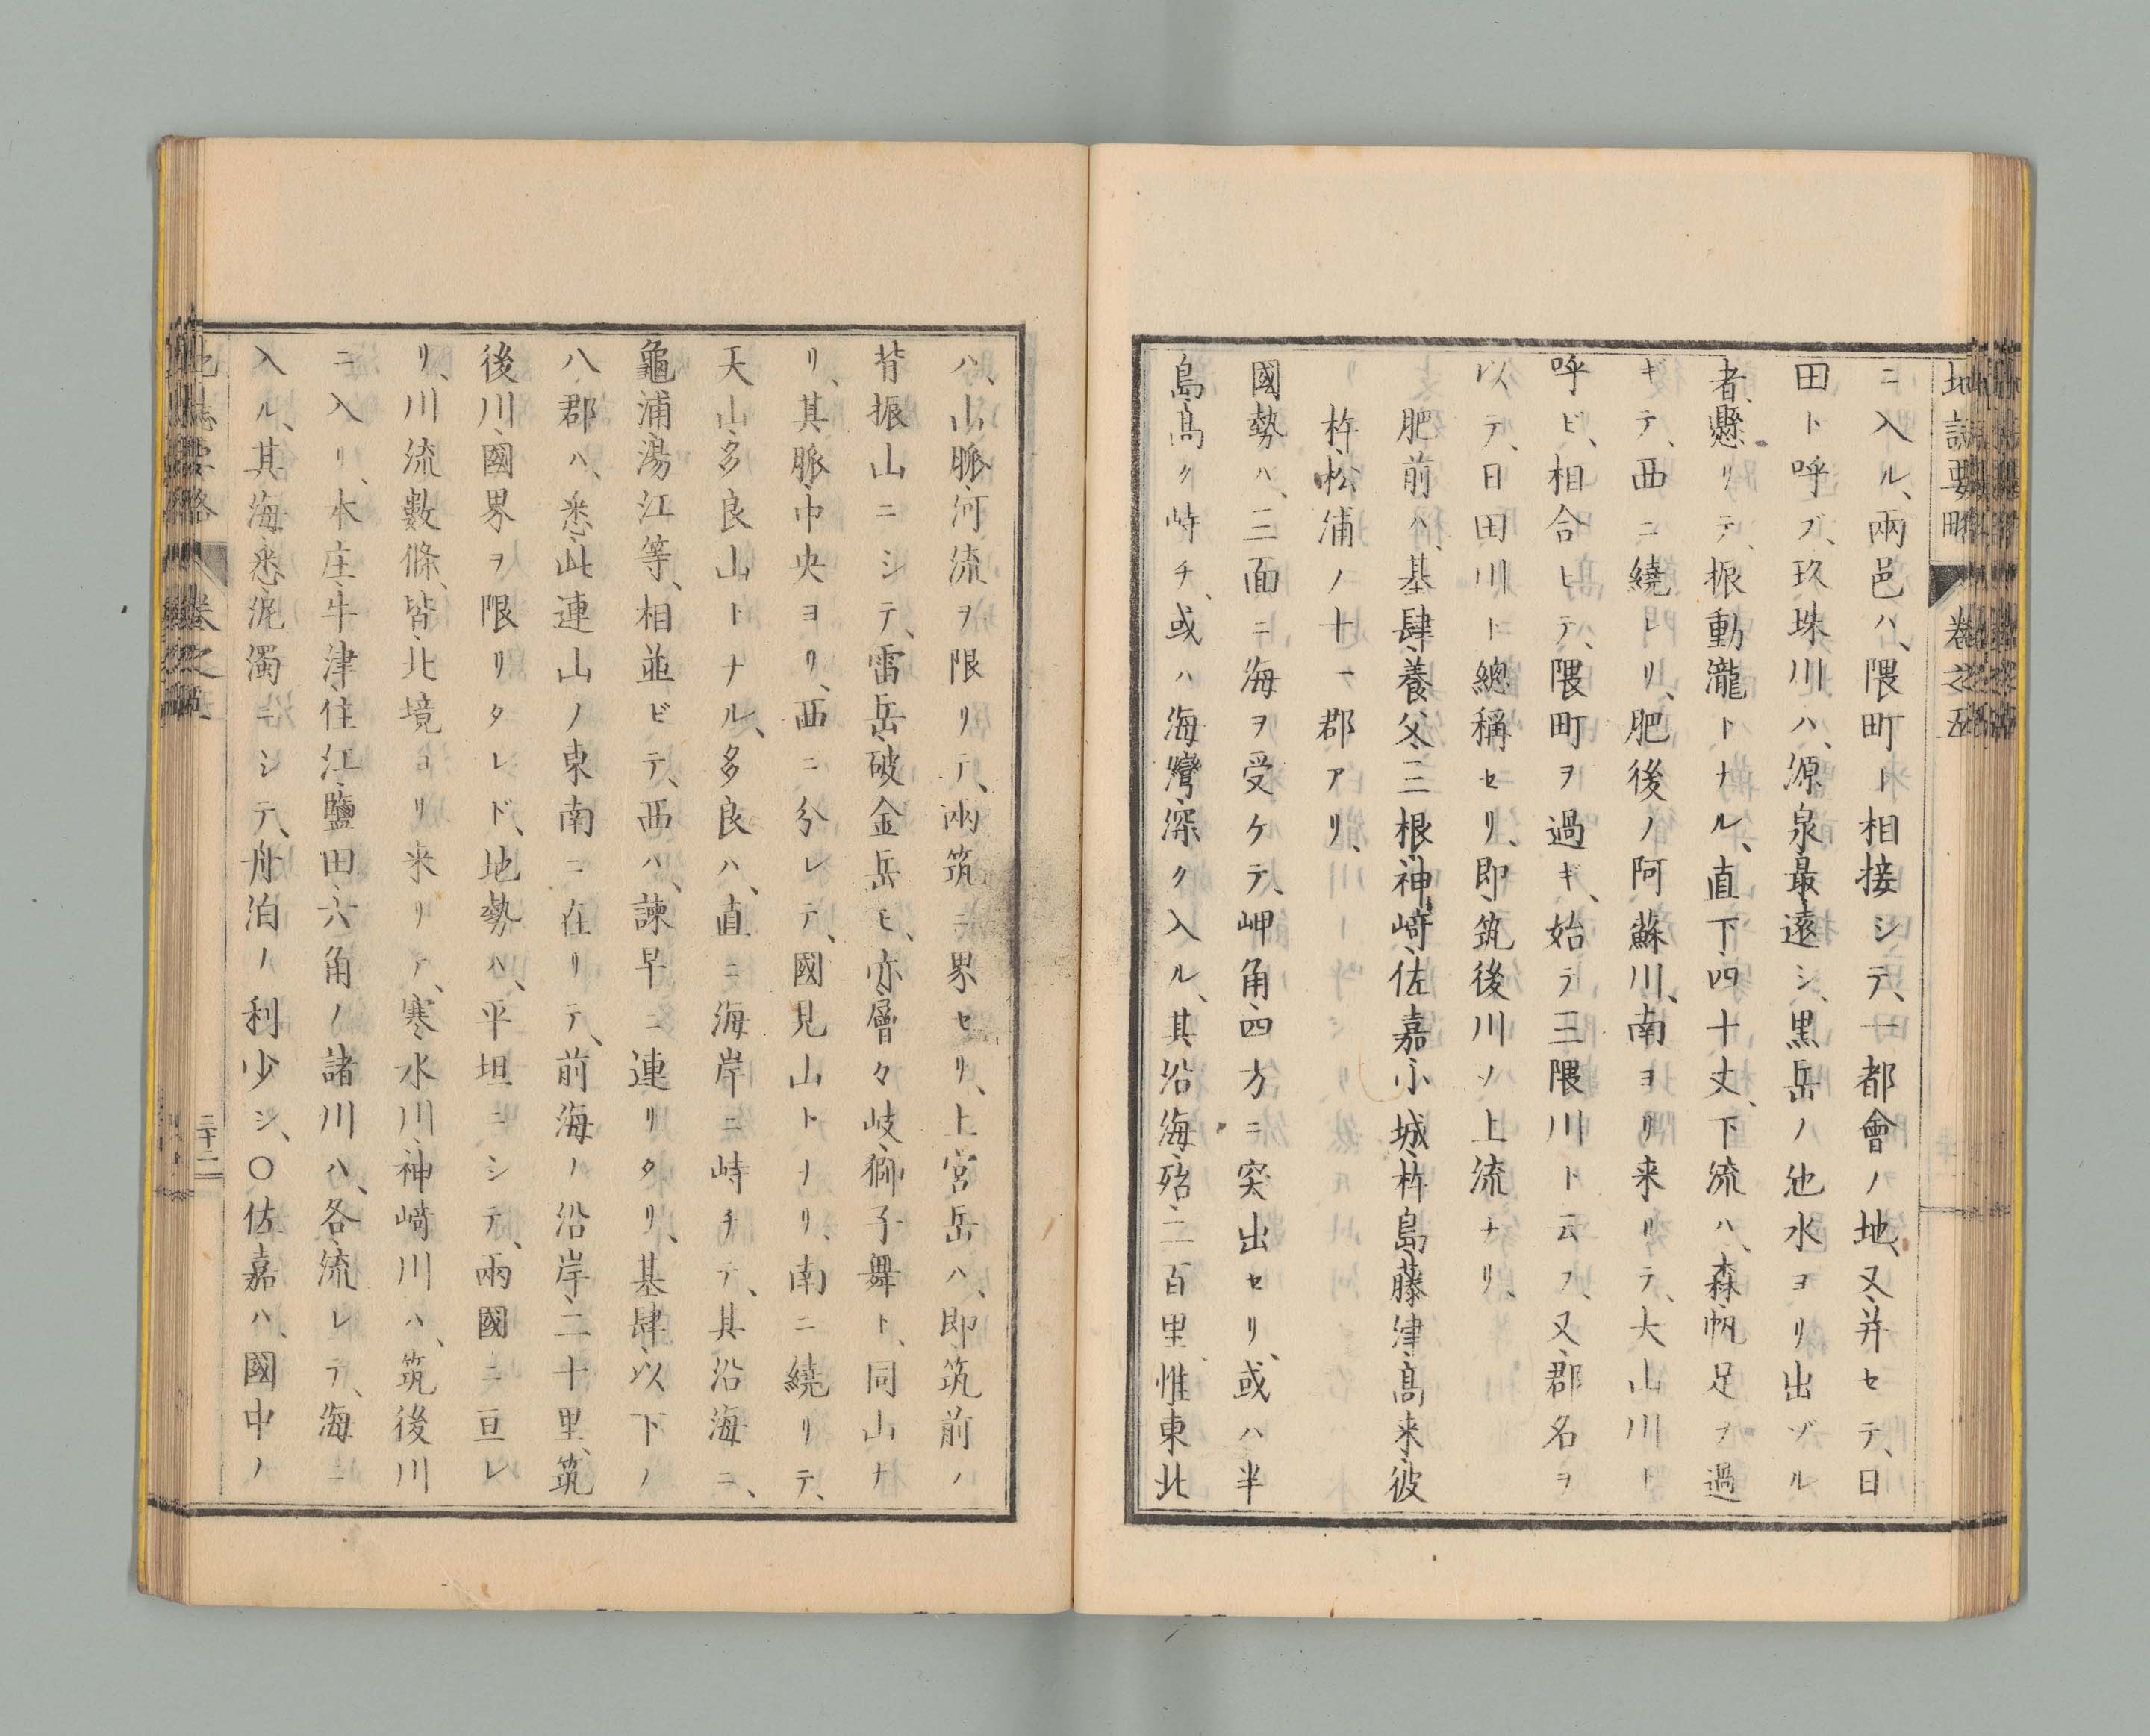 地誌要略 卷之五
ニ入ル、兩邑ハ、隈町ト相接シテ、一都會ノ地、又并セテ、日
田ト呼ブ、玖珠川ハ、源泉最遠シ、黒岳ノ池水ヨリ出ヅル
者、懸リテ、振動瀧トナル、直下四十丈、下流ハ、森、帆足ヲ過
ギテ、西ニ繞レリ、肥後ノ阿蘇川、南ヨリ来リテ、大山川ト
呼ビ、相合ヒテ、隈町ヲ過ギ、始テ三隈川ト云フ、又、郡名ヲ
以テ、日田川ト總稱セリ、即、筑後川ノ上流ナリ、
肥前ハ、基肆、養父、三根、神﨑、佐嘉、小城、杵島、藤津、髙来、彼
杵、松浦ノ十一郡アリ、
國勢ハ、三面ニ海ヲ受ケテ、岬角、四方ニ突出セリ、或ハ半
島、髙ク峙チ、或ハ海灣、深ク入ル、其沿海、殆二百里、惟東北
ハ、山脈、河流ヲ限リテ、兩筑ニ界セリ、上宮岳ハ、即筑前ノ
背振山ニシテ、雷岳、破金岳モ、亦層々岐、獅子舞ト、同山ナ
リ、其脈、中央ヨリ、西ニ分レテ、國見山トナリ、南ニ繞リテ、
天山、多良山トナル、多良ハ、直ニ海岸ニ峙チテ、其沿海ニ、
龜浦、湯江等、相並ビテ、西ハ、諫早ニ連リタリ、基肆以下ノ
八郡ハ、悉此連山ノ東南ニ在リテ、前海ノ沿岸、二十里、筑
後川、國界ヲ限リタレド、地勢ハ、平坦ニシテ、兩國ニ亘レ
リ、川流數條、皆北境ヨリ来リテ、寒水川、神﨑川ハ、筑後川
ニ入リ、本庄、牛津、住江、鹽田、六角ノ諸川ハ、各流レテ、海ニ
入ル、其海、悉泥濁ニシテ、舟泊ノ利少シ、〇佐嘉ハ、國中ノ
地誌要略 卷之五 二十二